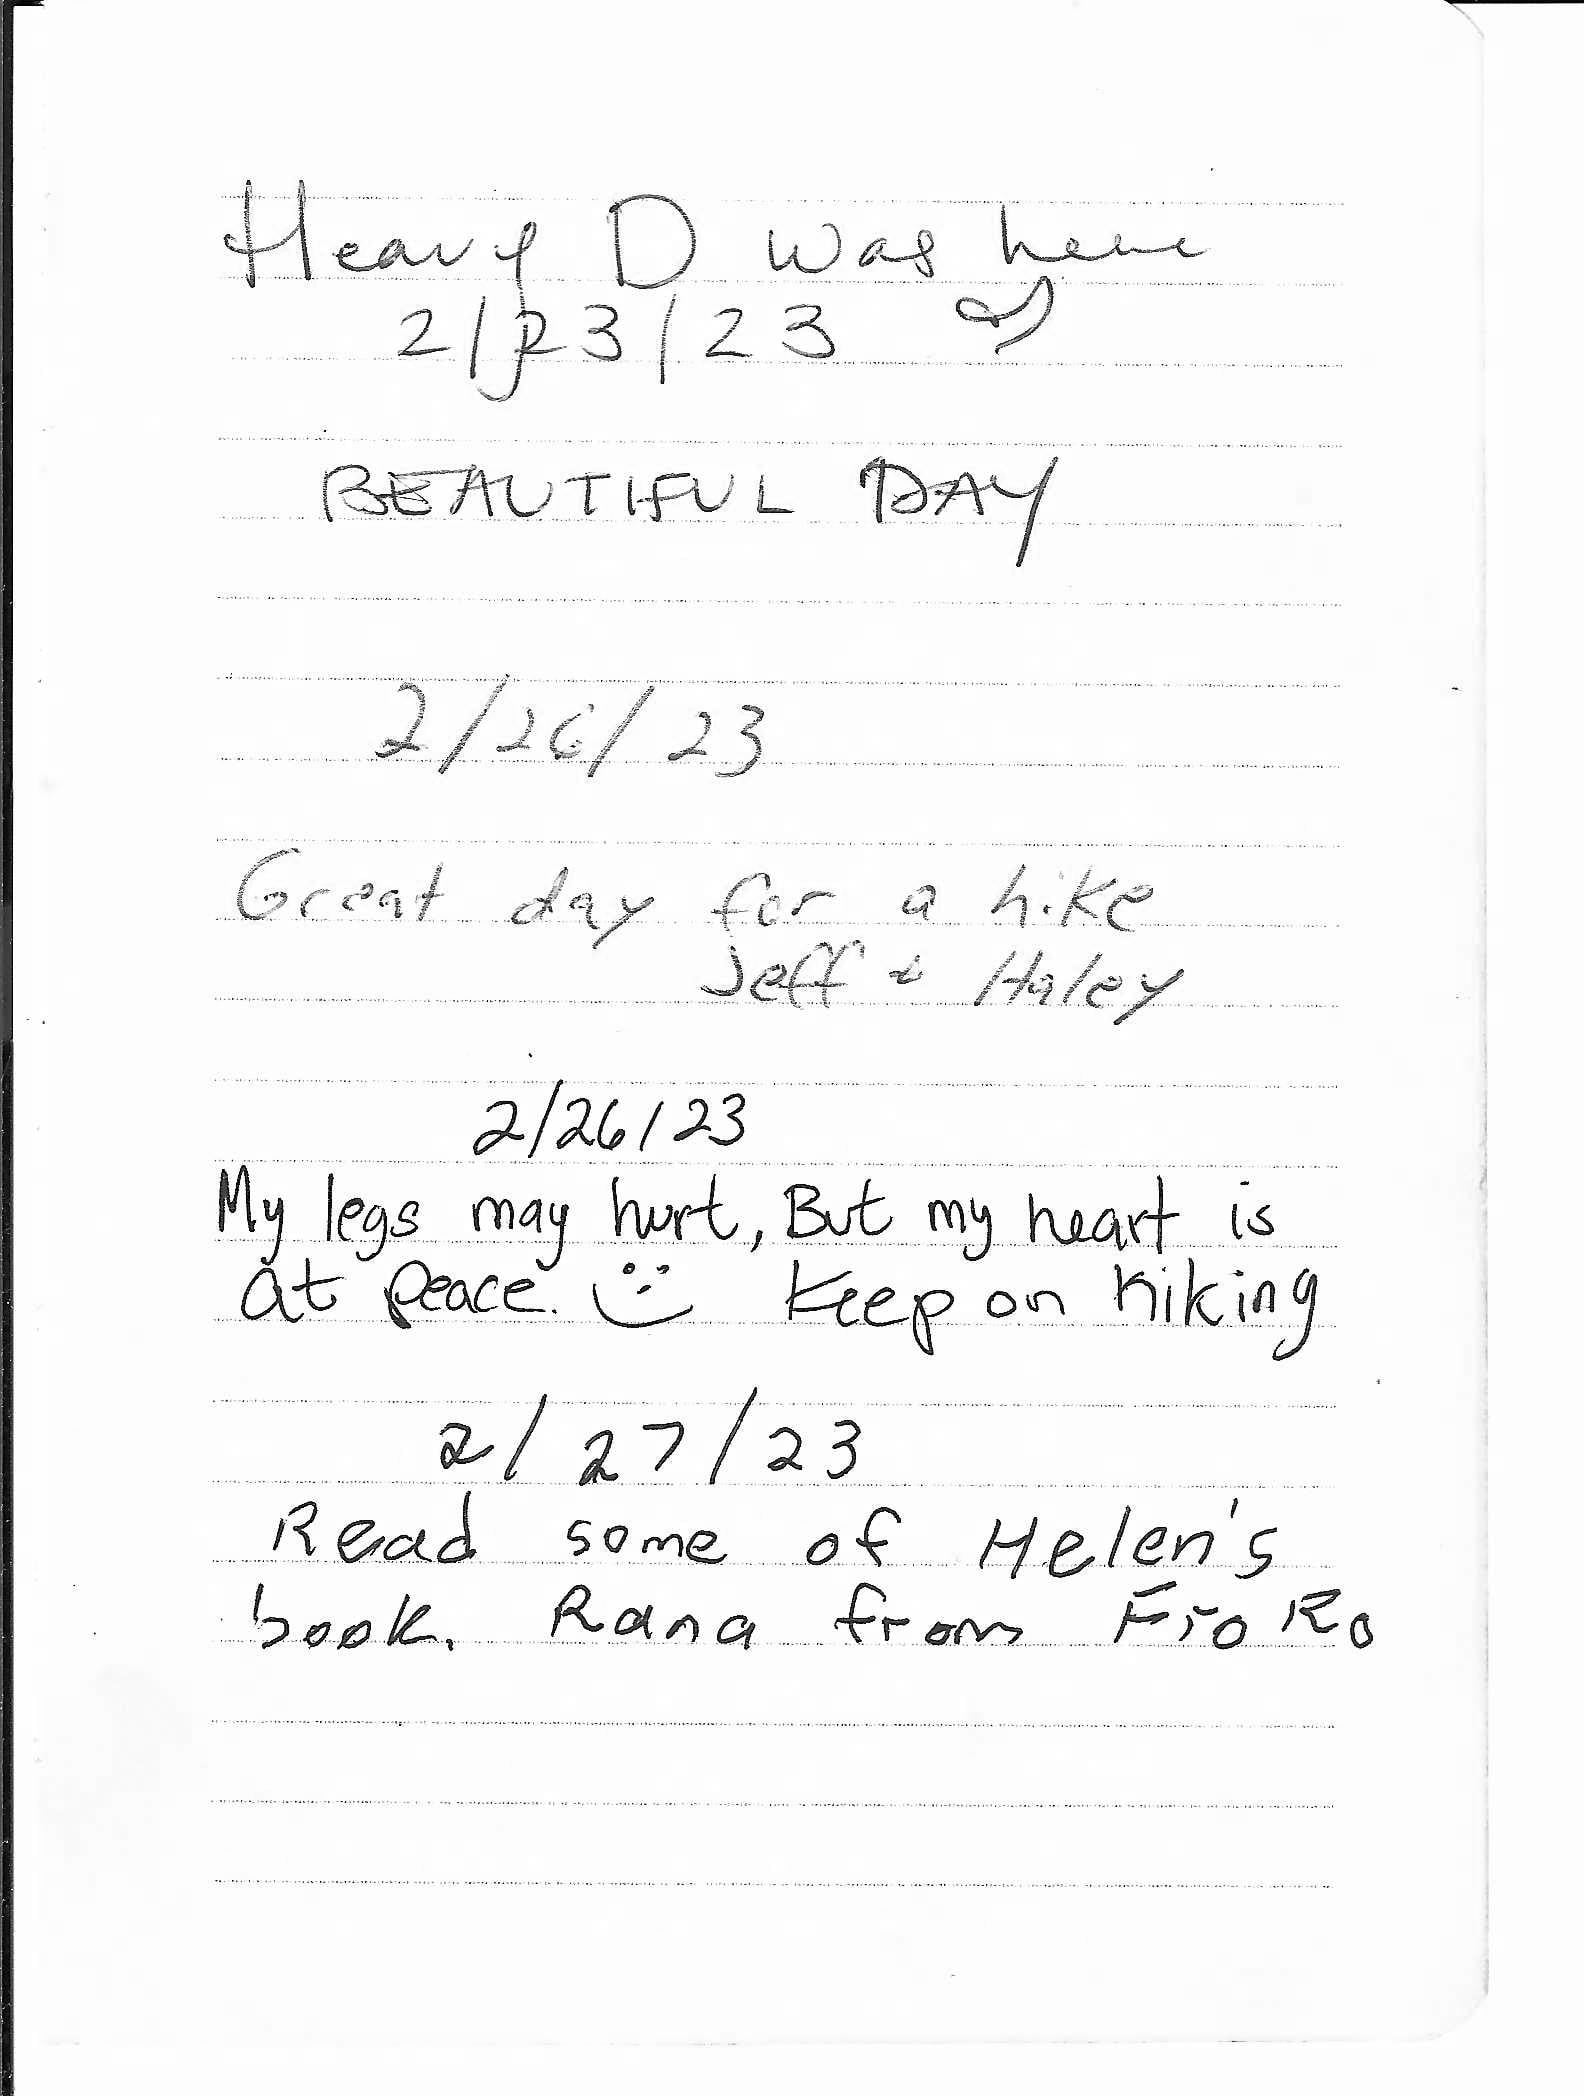 Heavy D was here
2/23/23
BEAUTIFUL DAY
2/26/23
Great day for a hike
Jeff & Haley
2/26/23
My legs may hurt, But my heart is
at peace. Keep on hiking
2/27/23
Read some of Helen's
book. Rana from FroRo